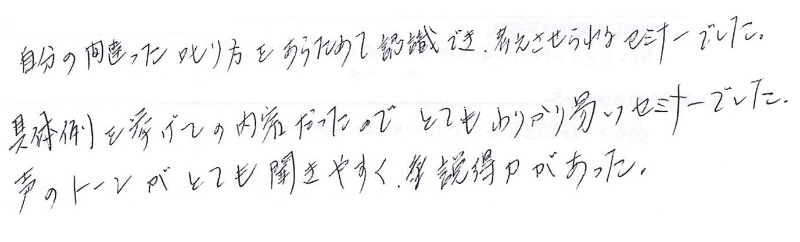 自分の間違った叱り方をあらためて認識でき、考えさせられるセミナーでした。
具体例を挙げての内容だったのでとてもわかり易いセミナーでした。
声のトーンがとても聞きやすく、説得力があった。